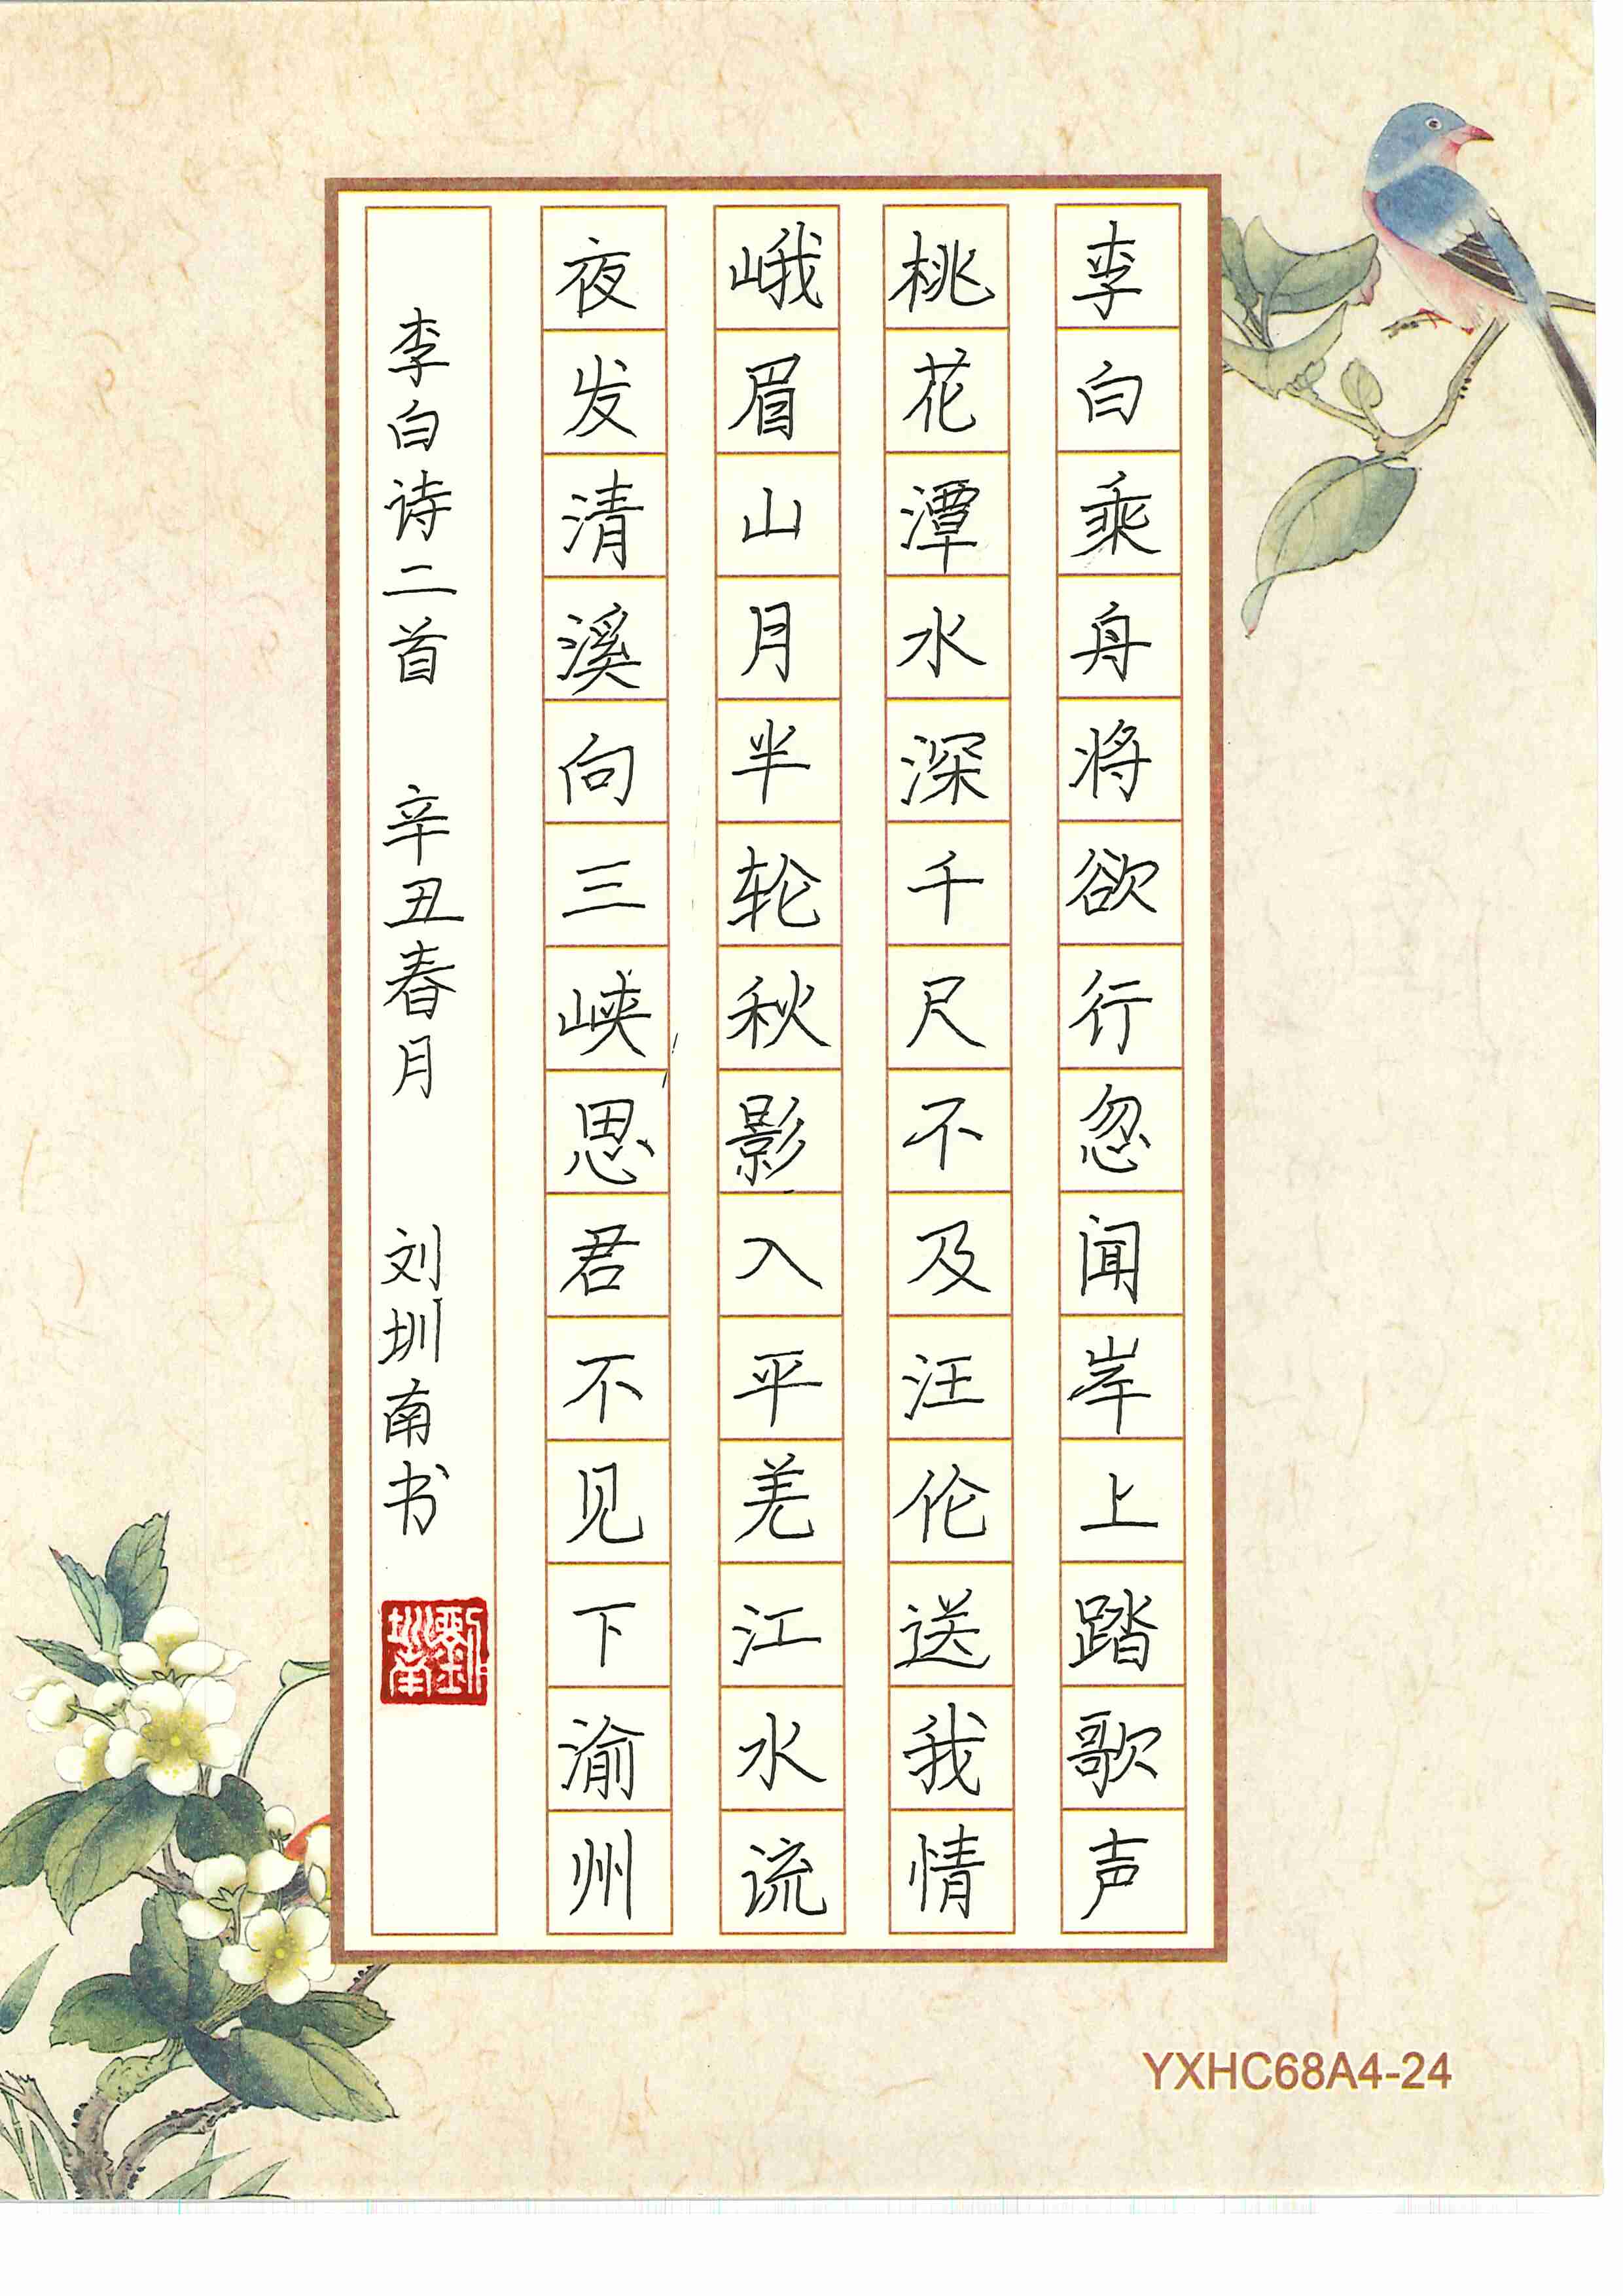 李白乘舟将欲行忽闻岸上踏歌声
桃花潭水深千尺不及汪伦送我情
峨眉山月半轮秋影入平羌江水流
夜发清溪向三峡思君不见下渝州
李白诗二首 辛丑春月 刘圳南书
劉圳南
YXHC68A4-24